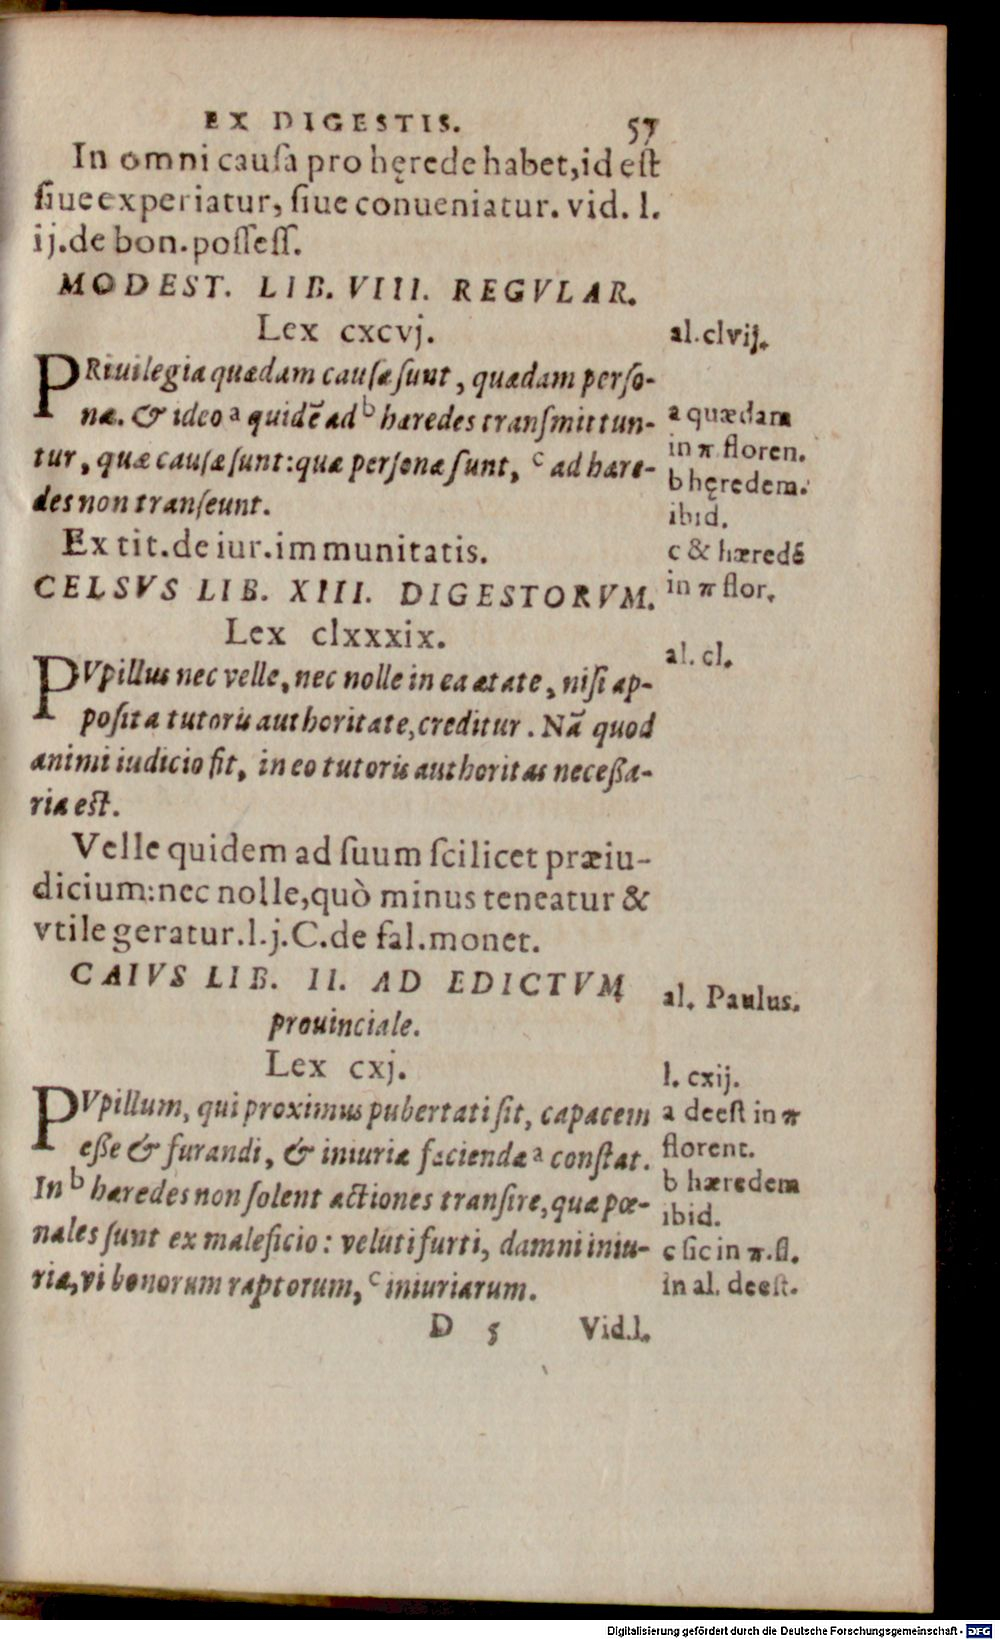 EX DIGESTIS. 57
In omni cauſa pro hęrede habet, id eſt
ſiue experiatur, ſiue conueniatur. vid. l.
ij. de bon. poſſeſſ.
MODEST. LIB. VIII. REGVLAR.
Lex cxcvj.
al. clvij.
PRiuilegia quædam cauſæ ſunt, quædam perſo-
næ. & ideo a quidē ad b hæredes tranſmittun-
tur, quæ cauſæ ſunt: quæ perſonæ ſunt, c ad hære-
des non tranſeunt.
a quædam
in π floren.
b hęredem.
ibid.
c & hæredē
in π flor.
Ex tit. de iur. immunitatis.
CELSVS LIB. XIII. DIGESTORVM.
Lex clxxxix.
al. cl.
PVpillus nec velle, nec nolle in ea ætate, niſi ap-
poſita tutoris authoritate, creditur. Nā quod
animi iudicio fit, in eo tutoris authoritas neceßa-
ria eſt.
Velle quidem ad ſuum ſcilicet præiu-
dicium: nec nolle, quò minus teneatur &
vtile geratur. l. j. C. de fal. monet.
CAIVS LIB. II. AD EDICTVM
prouinciale.
al. Paulus.
Lex cxj.
l. cxij.
PVpillum, qui proximus pubertati ſit, capacem
eße & furandi, & iniuriæ faciendæ a conſtat.
In b hæredes non ſolent actiones tranſire, quæ pœ-
nales ſunt ex maleficio: veluti furti, damni iniu-
riæ, vi bonorum raptorum, c iniuriarum.
a deeſt in π
florent.
b hæredem
ibid.
c ſic in π. fl.
in al. deeſt.
D 5 Vid. l.
Digitalisierung gefördert durch die Deutsche Forschungsgemeinschaft - DFG